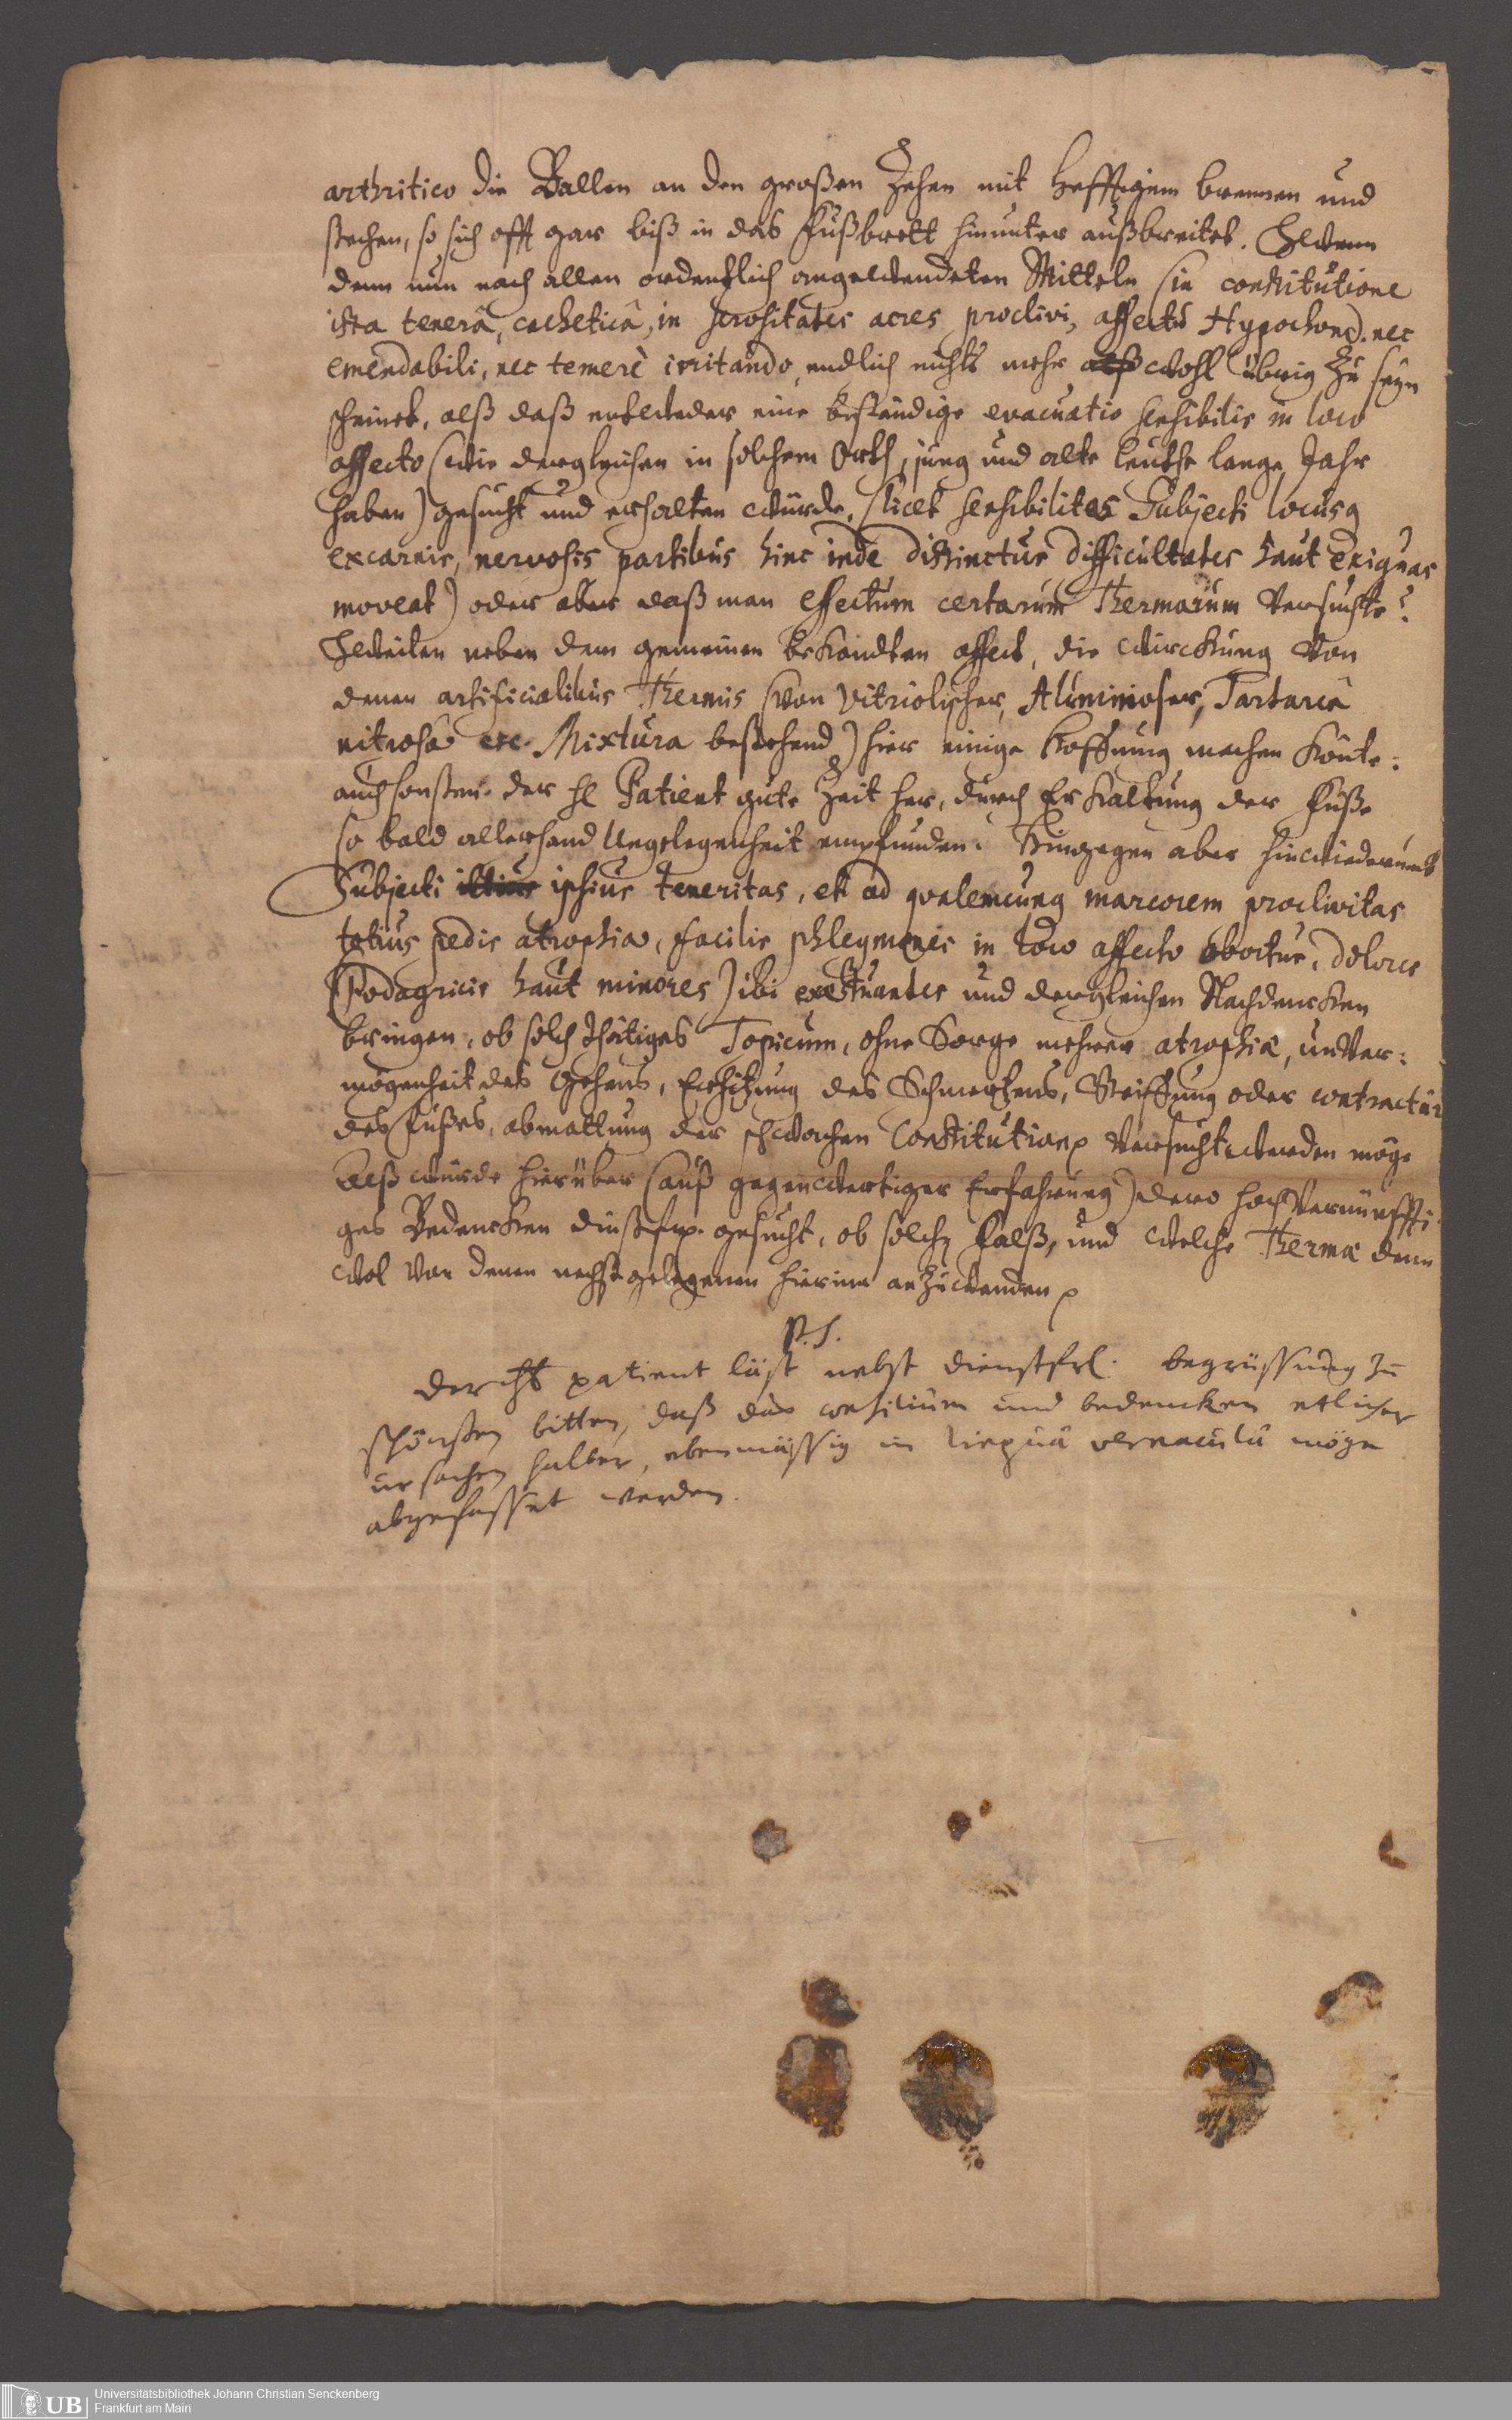 arthritico die Ballen an den großen Zehen mit hefftigem brennen und
stechen, so sich offt gar biß in das fußbrett hinunter außbreitet. Wenn
denn nun nach allen ordentlich angewendeten Mitteln (in constitutione
ista tenerâ, cachetica, in serositates acres proclivi, affectu Hypochond. nec
emendabili, nec temerè irritando, endlich nichts mehr wohl übrig zu seyn
scheinet, alß daß entweder eine beständige evacuatio sensibilis in loco
affecto (wie dergleichen in solchem Orth, jung und alte leuthe lange Jahr
haben) gesucht und erhalten würde, (licet sensibilitas Subjecti locusq
excarnis, nervosis partibus hinc inde distinctus difficultates haut exiguas
moveat) oder aber daß man effectum certarum Thermarum versuchte?
Weilen neben dem gemeinen bekandten effect, die würckung von
denen artificialibus Thermis (von Vitriolischer, Aluminoser, Tartarea
nitrosâ etc. Mixtura bestehend) hier einige hoffnung machen könte:
auch sonsten der H Patient gute Zeit her, durch Erkaltung der füße
so bald allerhand Ungelegenheit empfunden. Hingegen aber hinwiederumb
Subjecti ipsius teneritas, et ad qualemcunq marcorem proclivitas
totius pedis atrophia, facilis phlegmones in loco affecto obortus, dolores
(Podagricis haut minores) ibi exæstuantes und dergleichen Nachdencken
bringen, ob solch thätiges Topicum, ohne Sorge mehrer atrophiæ, unver:
mögenheit des Gehens, Erhitzung des Schmertzens, Steiffung oder contractur
des fußes, abmattung der schwachen Constitution versucht werden möge
Alß würde hierüber (auß gegenwertiger Erfahrung) dero hochvernünffti
ges Bedencken dinstfr. gesucht, ob solch falß, und welche Thermæ denn
wol von denen nechstgelegenen hierinn anzuwenden
P.S.
der H patient läst nebst dienstfrl. begrüssung zu
schönsten bitten, daß das consilium und bedencken etlicher
ursachen halber, ebenmässig in linguâ vernaculâ möge
abgefasset werden.
UB
Universitätsbibliothek Johann Christian Senckenberg
Frankfurt am Main